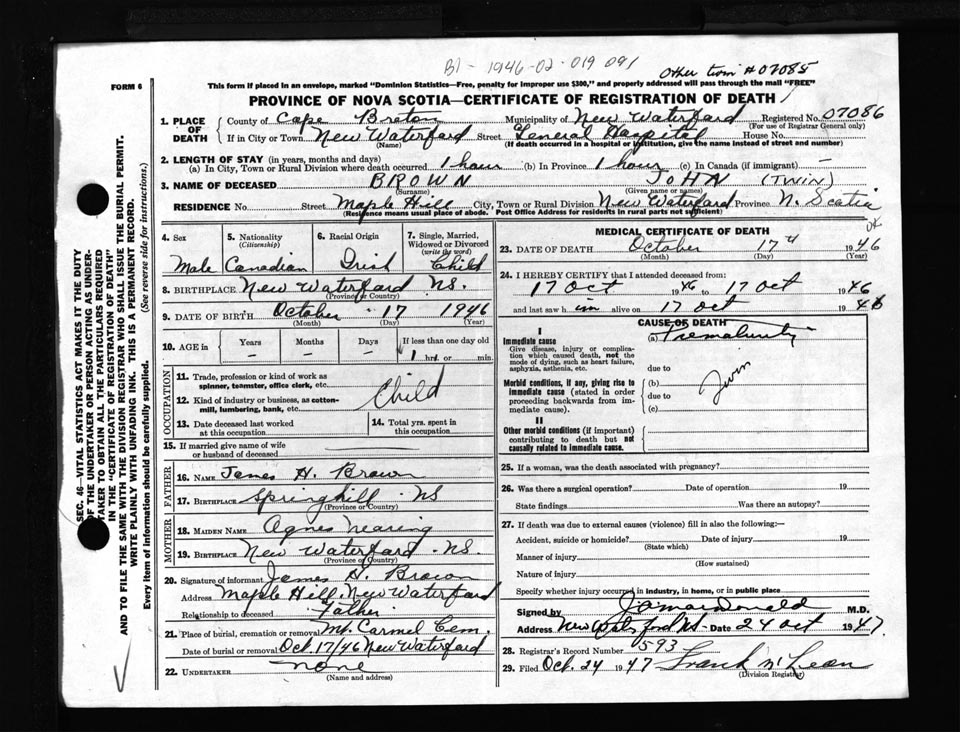 B1 - 1946-02-019 091
Other twin #07085
FORM 6
This form if placed in an envelope, marked "Dominion Statistics—Free, penalty for improper use $300," and properly addressed will pass through the mail "FREE"
PROVINCE OF NOVA SCOTIA—CERTIFICATE OF REGISTRATION OF DEATH
1. PLACE OF DEATH County of Cape Breton Municipality of New Waterford Registered No. 07086
(For use of Registrar General only)
If in City or Town New Waterford Street General Hospital House No.
(Name) (If death occurred in a hospital or institution, give the name instead of street and number)
2. LENGTH OF STAY (in years, months and days)
(a) In City, Town or Rural Division where death occurred 1 hour (b) In Province 1 hour (c) In Canada (if immigrant) —
3. NAME OF DECEASED BROWN JOHN (TWIN)
(Surname) (Given name or names)
RESIDENCE No. Street Maple Hill City, Town or Rural Division New Waterford Province N. Scotia
(Residence means usual place of abode. Post Office Address for residents in rural parts not sufficient)
4. Sex 5. Nationality (Citizenship) 6. Racial Origin 7. Single, Married, Widowed or Divorced (write the word)
Male Canadian Irish Child
8. BIRTHPLACE New Waterford NS.
(Province or Country)
9. DATE OF BIRTH October 17 1946
(Month) (Day) (Year)
10. AGE in Years Months Days If less than one day old
— — — 1 hrs. or min.
OCCUPATION
11. Trade, profession or kind of work as spinner, teamster, office clerk, etc.
Child
12. Kind of industry or business, as cotton-mill, lumbering, bank, etc.
13. Date deceased last worked at this occupation
14. Total yrs. spent in this occupation
15. If married give name of wife or husband of deceased
FATHER
16. NAME James H. Brown
17. BIRTHPLACE Springhill NS
(Province or Country)
MOTHER
18. MAIDEN NAME Agnes Nearing
19. BIRTHPLACE New Waterford NS.
(Province or Country)
20. Signature of informant James H. Brown
Address Maple Hill, New Waterford
Relationship to deceased Father
21. Place of burial, cremation or removal Mt. Carmel Cem.
Date of burial or removal Oct. 17/46 New Waterford
22. UNDERTAKER none
(Name and address)
MEDICAL CERTIFICATE OF DEATH
23. DATE OF DEATH October 17th 1946
(Month) (Day) (Year)
24. I HEREBY CERTIFY that I attended deceased from:
17 Oct 1946 to 17 Oct 1946
and last saw h im alive on 17 Oct 1946
CAUSE OF DEATH
I
Immediate cause (a) Prematurity
Give disease, injury or complication which caused death, not the mode of dying, such as heart failure, asphyxia, asthenia, etc.
due to
Morbid conditions, if any, giving rise to immediate cause (stated in order proceeding backwards from immediate cause).
(b) Twin
due to
(c)
II
Other morbid conditions (if important) contributing to death but not causally related to immediate cause.
25. If a woman, was the death associated with pregnancy?
26. Was there a surgical operation? Date of operation 19
State findings Was there an autopsy?
27. If death was due to external causes (violence) fill in also the following:—
Accident, suicide or homicide? Date of injury 19
(State which)
Manner of injury
(How sustained)
Nature of injury
Specify whether injury occurred in industry, in home, or in public place
Signed by J. A. MacDonald M.D.
Address New Waterford NS. Date 24 Oct 1947.
28. Registrar's Record Number 593
29. Filed Oct. 24 1947 Frank McLean
(Division Registrar)
SEC. 46—VITAL STATISTICS ACT MAKES IT THE DUTY
OF THE UNDERTAKER OR PERSON ACTING AS UNDERTAKER TO OBTAIN ALL THE PARTICULARS REQUIRED
IN THE "CERTIFICATE OF REGISTRATION OF DEATH"
AND TO FILE THE SAME WITH THE DIVISION REGISTRAR WHO SHALL ISSUE THE BURIAL PERMIT.
WRITE PLAINLY WITH UNFADING INK. THIS IS A PERMANENT RECORD.
Every item of information should be carefully supplied. (See reverse side for instructions.)